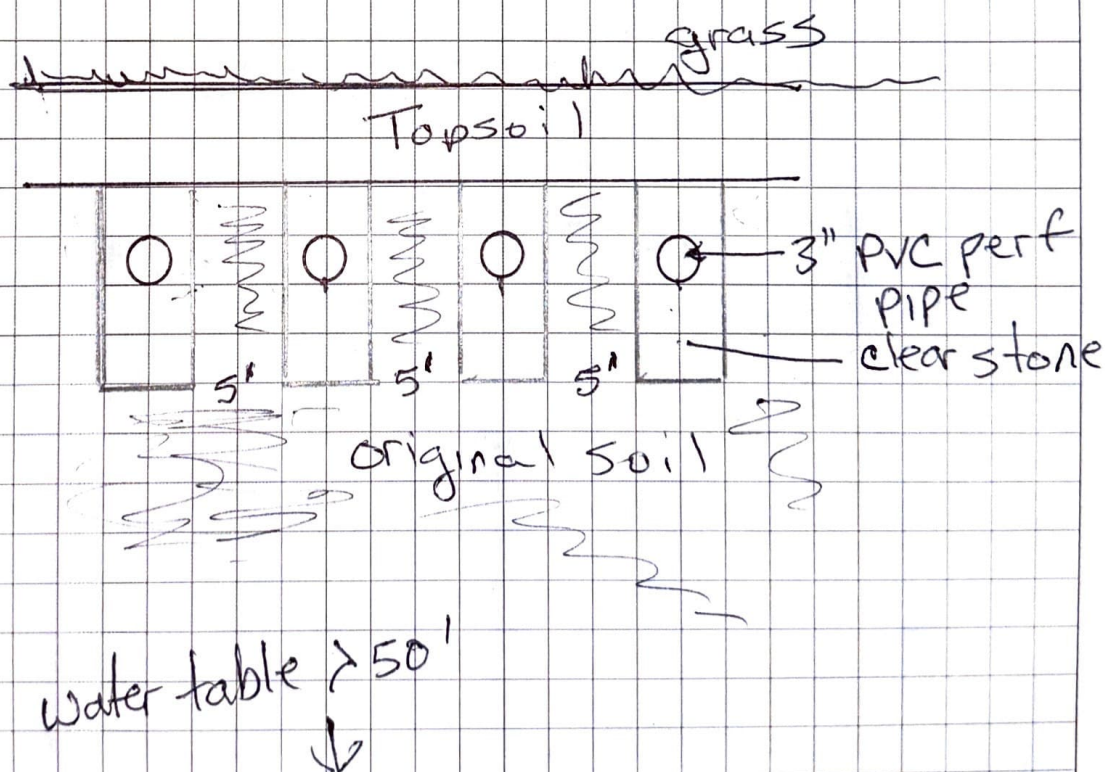 grass
Topsoil
3" PVC perf
pipe
clear stone
5' 5' 5'
original soil
water table > 50'